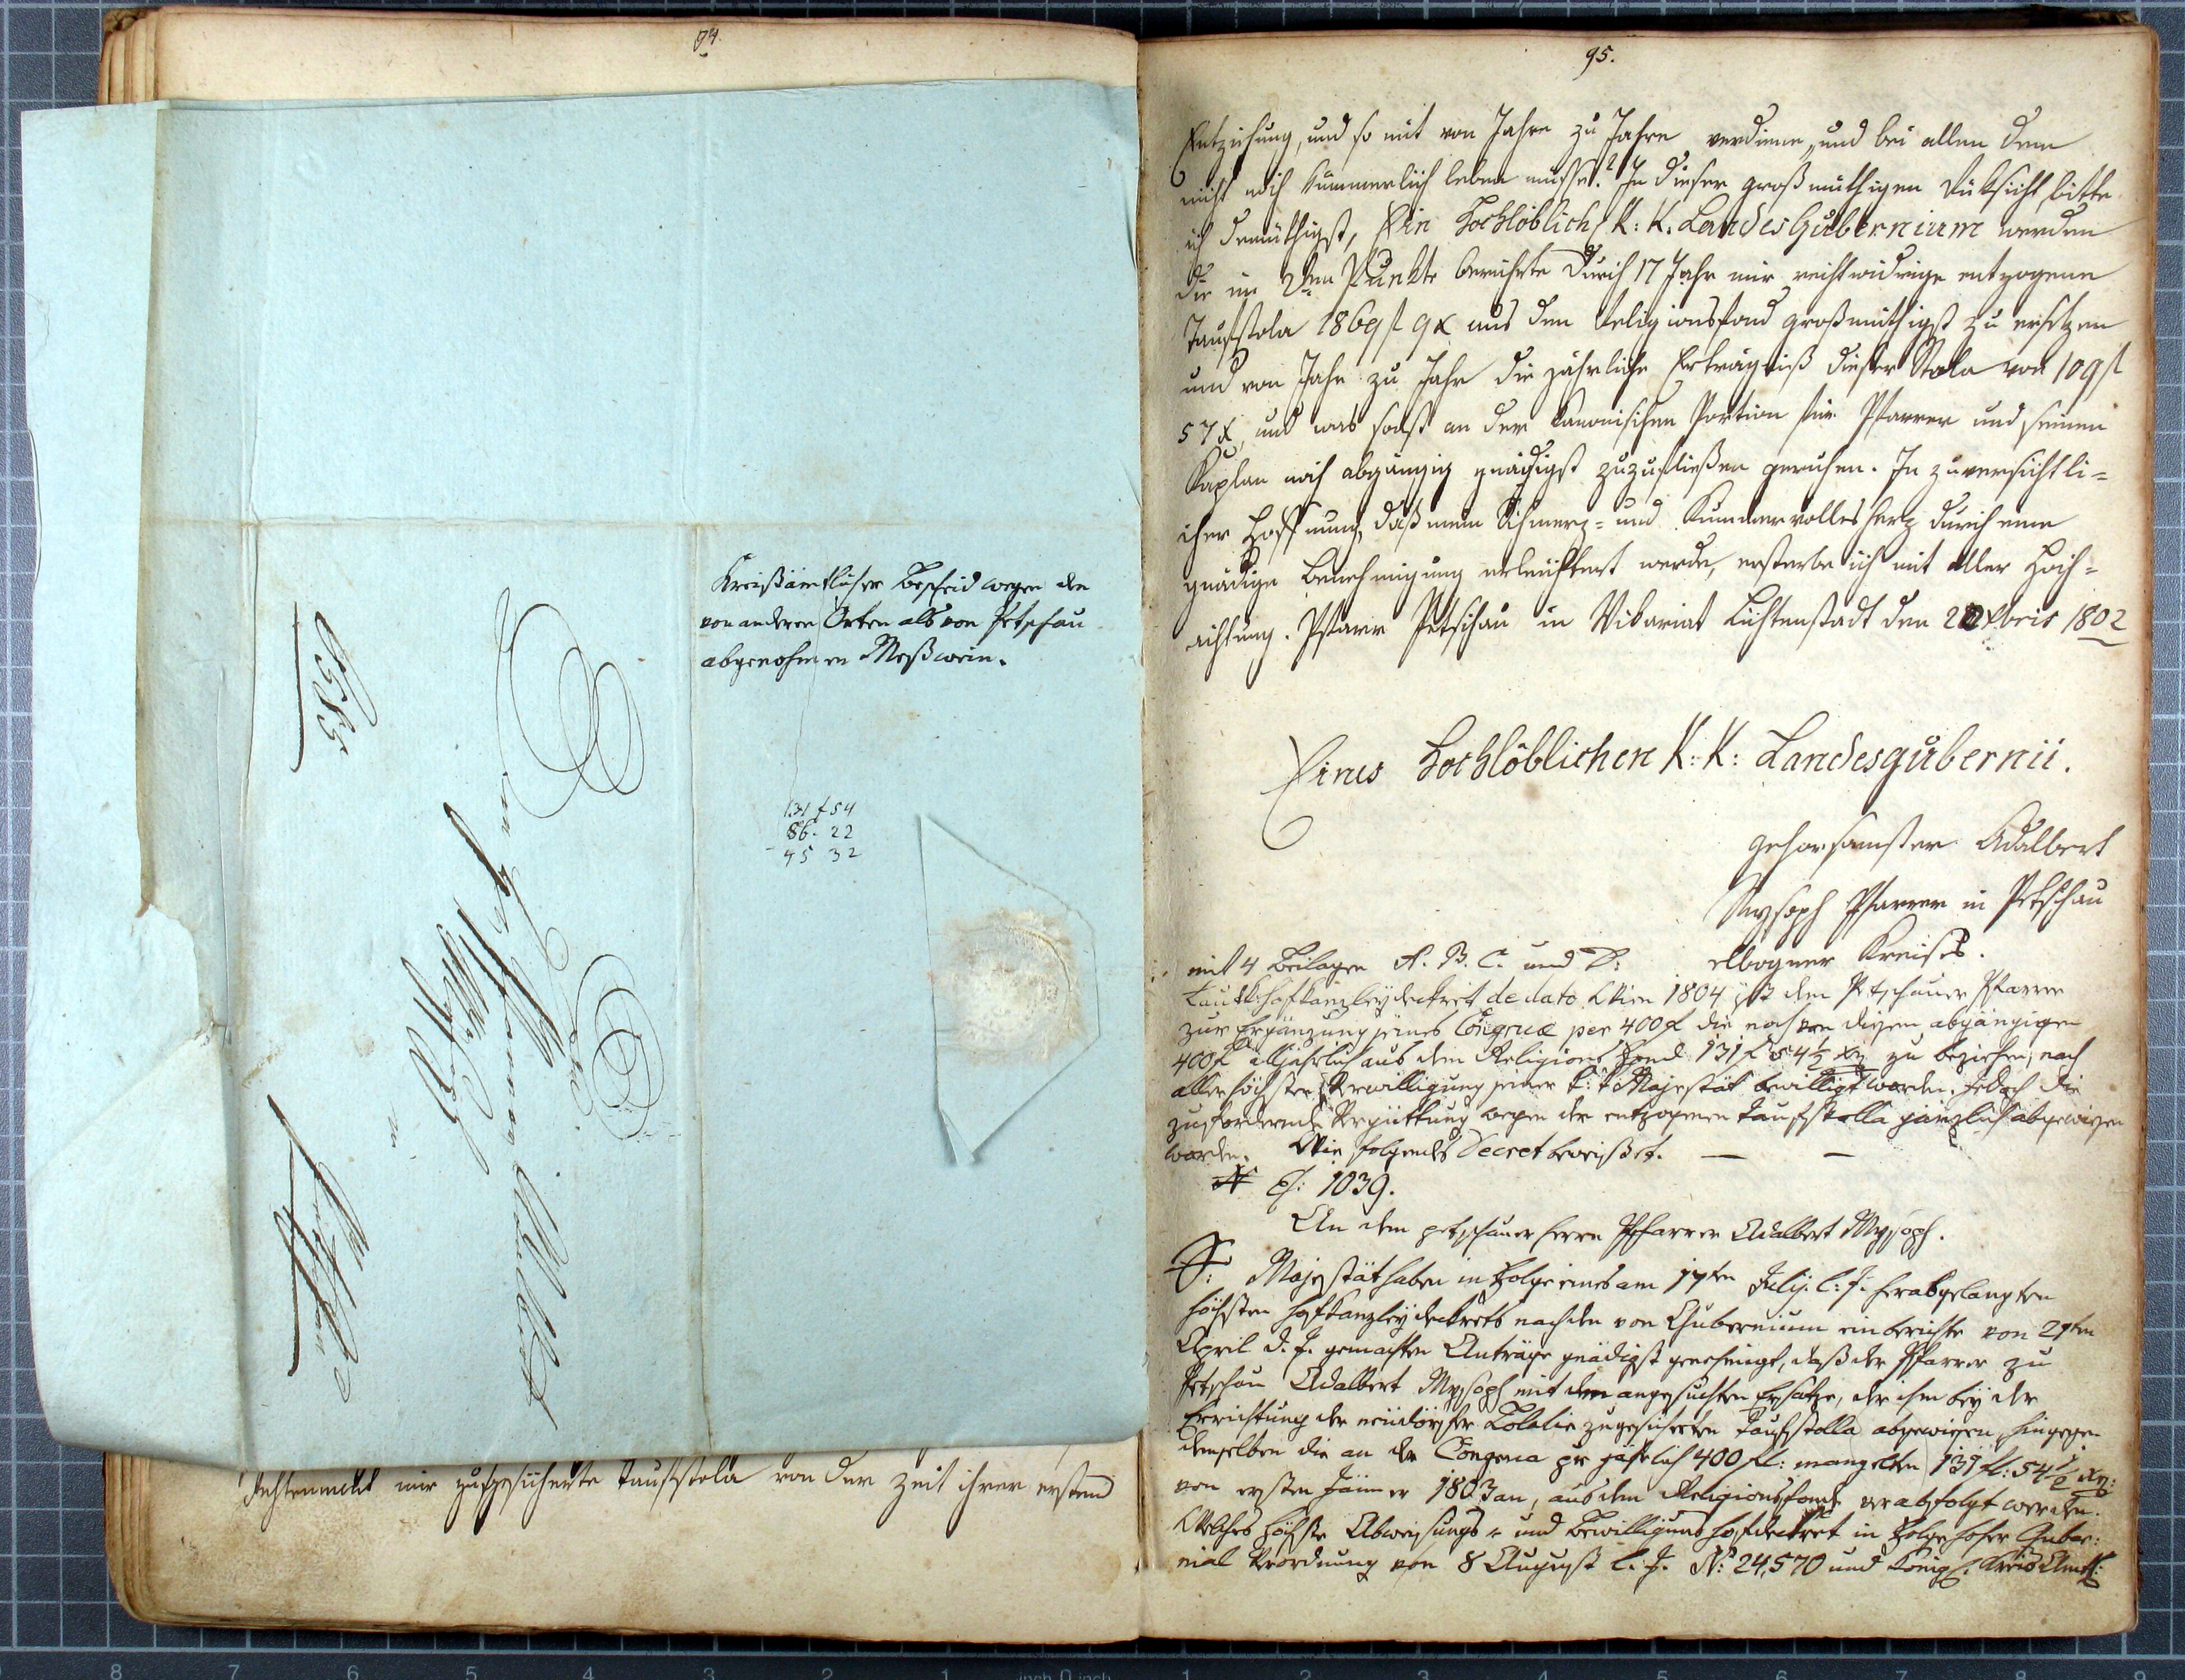 94.
Kreißämtlicher Bescheid wegen den
von anderen Orten als von Petschau
abgenohmenen Meßwein.
131 f 54
86. 22
45 32
mir zugesicherte Taufstola von der Zeit ihrer ersten
95.
Entziehung, und so mit von Jahre zu Jahre verdiene, und bei allen dem
nicht noch kummerlich leben müsse? In dieser großmüthigen Rüksicht bitte
ich demüthigst, Ein Hochlöblich K: K. LandesGubernium werden
die im 2ten Punkte berührte durch 17 Jahr mir rechtwidrige entzogene
Taufstola 1869 f 9 x aus den Religionsfond großmüthigst zu ersetzen
und von Jahr zu Jahr die jährliche Erträgniß dieser Stola von 109 f
57 x, und was sonst an der kanonischen Portion für Pfarrer und seinen
Kaplan noch abgängig gnädigst zuzufließen geruhen. In zuversichtli=
cher Hoffnung, daß mein Schmerz= und Kummervolles Herz durch eine
gnädige Genehmigung erleuchtert werde, ersterbe ich mit aller Hoch=
achtung. Pfarr Petschau in Vikariat Lichtenstadt den Xbris 1802
Eines Hochlöblichen K: K: Landesgubernii.
gehorsamster Adalbert
Mysoph Pfarrer in Petschau
elbogner Kreises.
mit 4 Beilagen A. B. C. und D:
Laut k: hofkanzleydeckret de dato Wien 1804 ist dem Petschauer Pfarrer
zur Ergänzung seines Congruæ per 400 f die noch von diesen abgängigen
400 f alljährlich aus dem Religions Fond 131 f 54 ½ xr zu beziehen, nach
allerhöchster Bewilligung seiner k: k Majestät bewilligt worden. Jedoch die
zufordernde Vergüttung wegen der entzogenen Taufstolla gänzlich abgewiesen
worden. Wie folgendes Decret beweißet. — —
N E: 1039.
An dem petschauer Herrn Pfarrer Adalbert Mysoph.
S: Majestät haben in Folge eines am 17ten Julij. l: J. herabgelangten
höchsten hofkanzleydeckrets nach den von Gubernium einberichte von 29ten
April d. J. gemachten Anträge gnädigst genehmigt, daß der Pfarrer zu
Petschau Adalbert Mysoph mit dem angesuchten Ersatze, der ihm bey der
Errichtung der neudorfer Lokalie zugesicherten Taufstolla abgewiesen, hingegen
demselben die an der Congrua pr jährlich 400 fl: mangelten 131 fl: 54 ½ xr:
von ersten Jänner 1803 an, aus dem Religionsfonde verabfolgt werden.
Welches höchste Abweisungs= und Bewilligungs hofdeckret in Folge hoher Guber=
nial Verordnung von 8 August l. J. N: 24,570 und königl. Kreis Amtl: